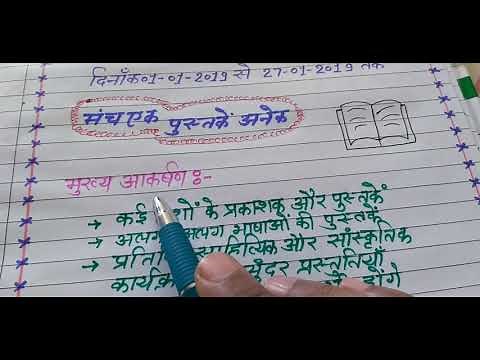 दिनाँक 01-01-2019 से 27-01-2019 तक
मंच एक पुस्तकें अनेक
मुख्य आकर्षण :-
→ कई के प्रकाशक और पुस्तकें
→ अलग भाषाओं की पुस्तकें
→ और सांस्कृतिक
प्रस्तुतियाँ
होंगे